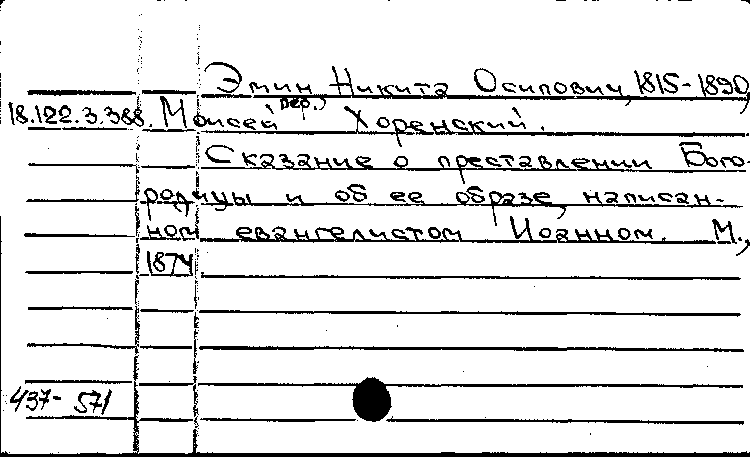 Эмин, Никита Осипович, 1815-1890,
пер.,
18.122.3.388. Моисей Хоренский.
Сказание о преставлении Бого-
родицы и об ее образе, написан-
ном евангелистом Иоанном. М.,
1874
437-571